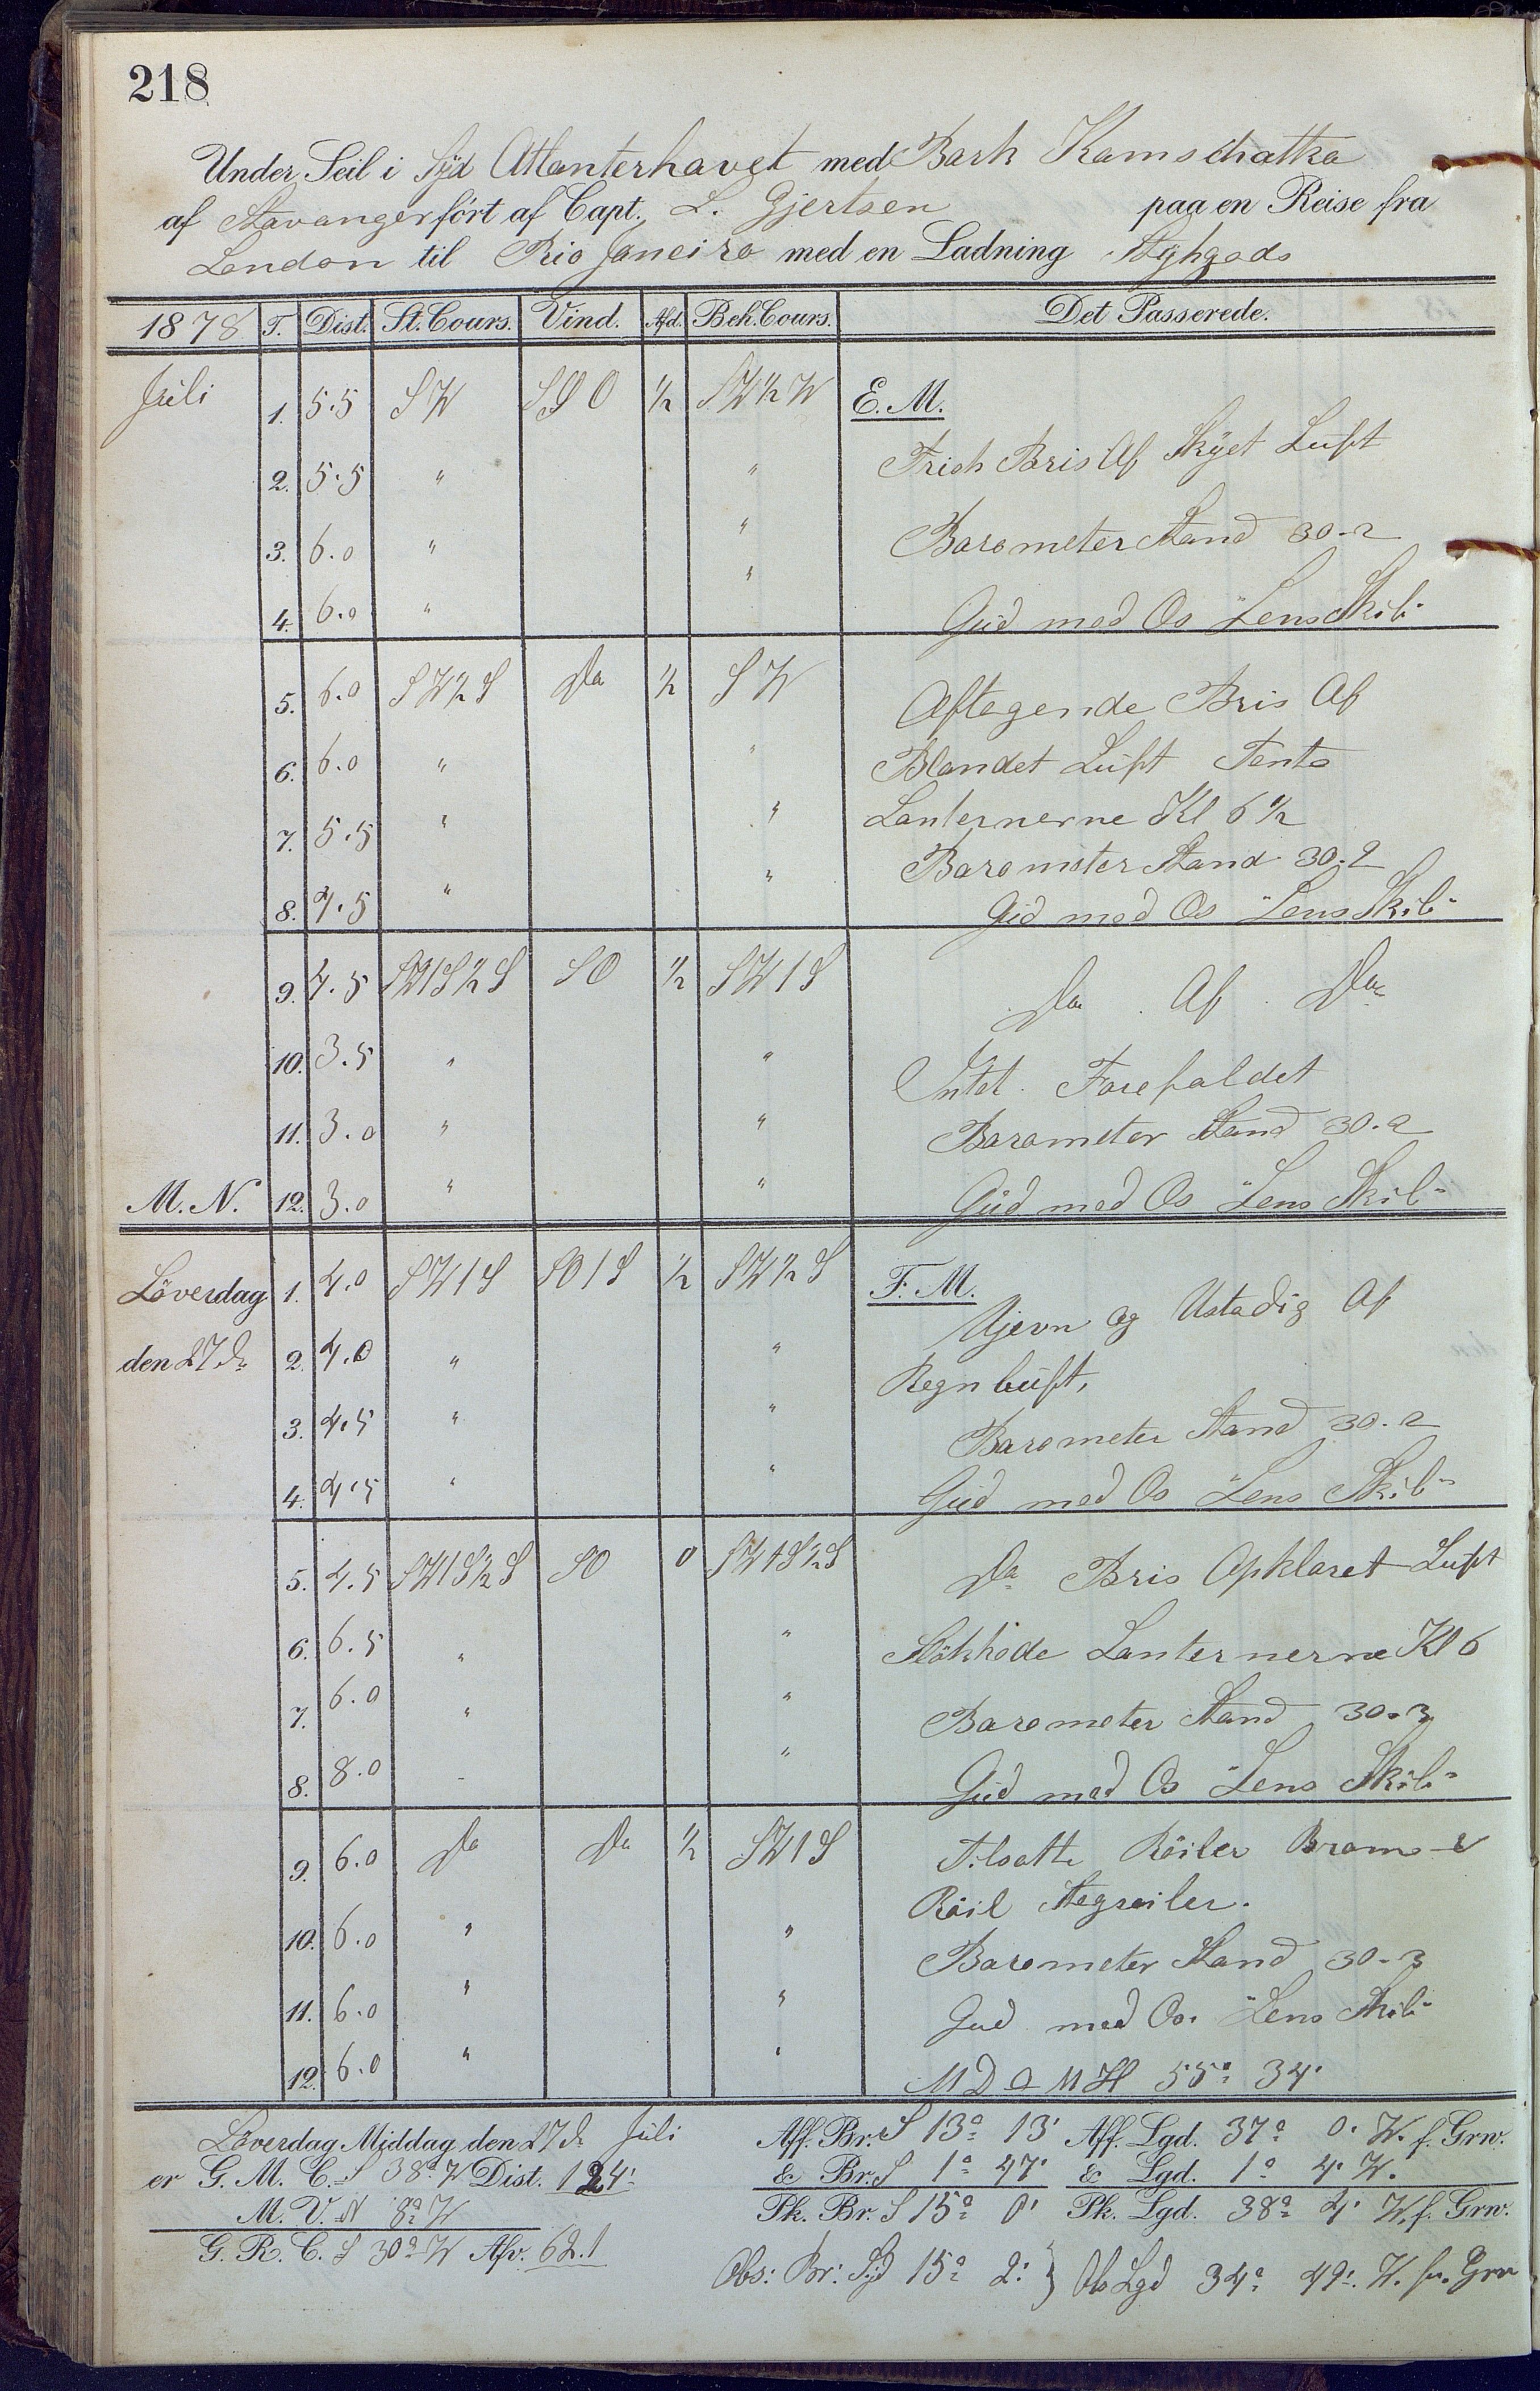 218
Under Seil i Syd Atlanterhavet med Bark Kamschatka
af Stavanger fört af Capt. L. Gjertsen paa en Reise fra
London til Rio Janeiro med en Ladning Stykgods
1878 T. Dist. St. Cours. Vind. Afd. Beh. Cours. Det Passerede.
Juli 1. 5.5 SW SSO ½ SW½W E. M.
2. 5.5 " " Frisk Bris Af Skyet Luft
3. 6.0 " " Barometer Stand 30-2
4. 6.0 " " Gud med Os Lens Skib
5. 6.0 SW½S Do ½ SW Aftagende Bris Af
6. 6.0 " " Blandet Luft Tente
7. 5.5 " " Lanternerne Kl 6½
Barometer Stand 30-2
8. 4.5 " " Gud med Os Lens Skib
9. 4.5 SW1S½S SO ½ SW1S Do Af Do
10. 3.5 " " Intet Forefaldet
11. 3.0 " " Barometer Stand 30.2
M. N. 12. 3.0 " " Gud med Os Lens Skib
Löverdag 1. 4.0 SW1S SO1S ½ SW½S F. M.
Ujevn og Ustadig Af
den 27 d. 2. 4.0 " " Regn luft,
3. 4.5 " " Barometer Stand 30-2
4. 4.5 " " Gud med Os Lens Skib
5. 4.5 SW1S½S SO 0 SW1S½S Do Bris Opklaret Luft
6. 6.5 " " Slökkede Lanternerne Kl 6
7. 6.0 " " Barometer Stand 30-3
8. 8.0 - " Gud med Os Lens Skib
9. 6.0 Do Do ½ SW1S Tilsatte Röiler Brams &
Röil Stagseiler.
10. 6.0 " " Barometer Stand 30-3
11. 6.0 " " Gud med Os Lens Skib
12. 6.0 " " 55° 34'
Löverdag Middag den 27 d. Juli Aff. Br. S 13° 13' Aff. Lgd. 37° 0' W. f. Grw.
er G. M. C. S 38° W Dist. 124' & Br. S 1° 47' & Lgd. 1° 4' W.
M. V. N 8° W Pk. Br. S 15° 0' Pk. Lgd. 38° 4' W. f. Grw.
G. R. C. S 30° W Afv. 62.1
Obs: Br: Syd 15° 2' } Ob Lgd 34° 49' W. fr. Grw